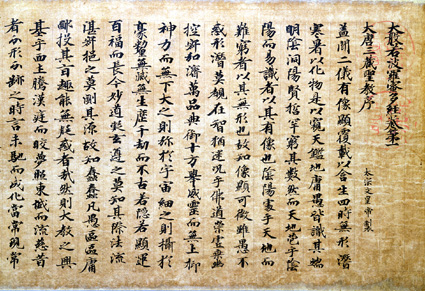 大般若波羅蜜多經卷第
大唐三藏聖教序
太宗文皇帝製
蓋聞二儀有像顯覆載以含生四時無形潛
寒暑以化物是以窺天鑑地庸愚皆識其端
明陰洞陽賢哲罕窮其數然而天地苞乎陰
陽而易識者以其有像也陰陽處乎天地而
難窮者以其無形也故知像顯可徵雖愚不
惑形潛莫覩在智猶迷況乎佛道崇虛乘幽
控寂弘濟萬品典御十方舉威靈而無上抑
神力而無下大之則彌於宇宙細之則攝於
豪釐無滅無生歷千劫而不古若隱若顯運
百福而長今妙道凝玄遵之莫知其際法流
湛寂挹之莫測其源故知蠢蠢凡愚區區庸
鄙投其旨趣能無疑惑者哉然則大教之興
基乎西土騰漢庭而皎夢照東域而流慈昔
者分形分跡之時言未馳而成化當常現常